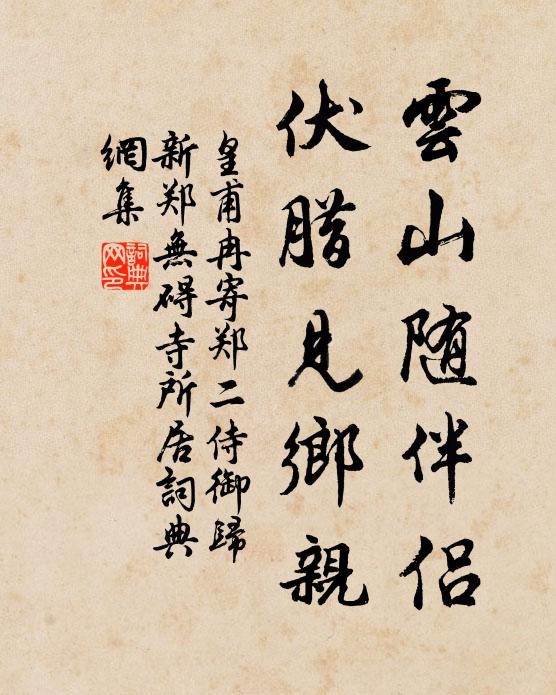 雲山随伴侣
伏腊見鄉親
皇甫冉寄郑二侍御歸
新郑無碍寺所居詞典
網集
詞典
网印